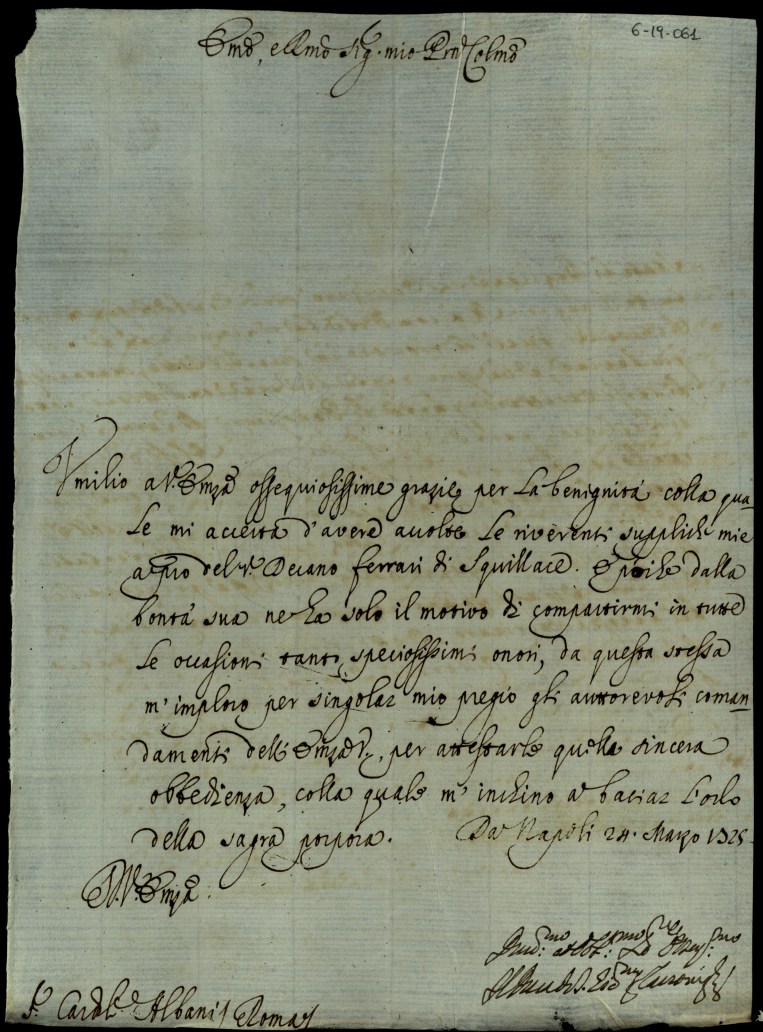 6-19-061
Emo, e Rmo Sig. mio Prn Colmo
Umilio a V. Emza ossequiosissime grazie per la benignità colla qua-
le mi accerta d'avere accolte le riverenti suppliche mie
a pro del Sr. Decano Ferrari di Squillace. E poiche dalla
bontà sua ne ha solo il motivo di compartirmi in tutte
le occasioni tanti speciosissimi onori, da questa stessa
m'imploro per singolar mio pregio gli auttorevoli coman-
damenti dell'Emza V., per attestarle quella sincera
obbedienza, colla quale m'inchino a baciar l'orlo
della sagra porpora. Da Napoli 24. Marzo 1725
Di V. Emza
Sr. Cardle Albani Roma